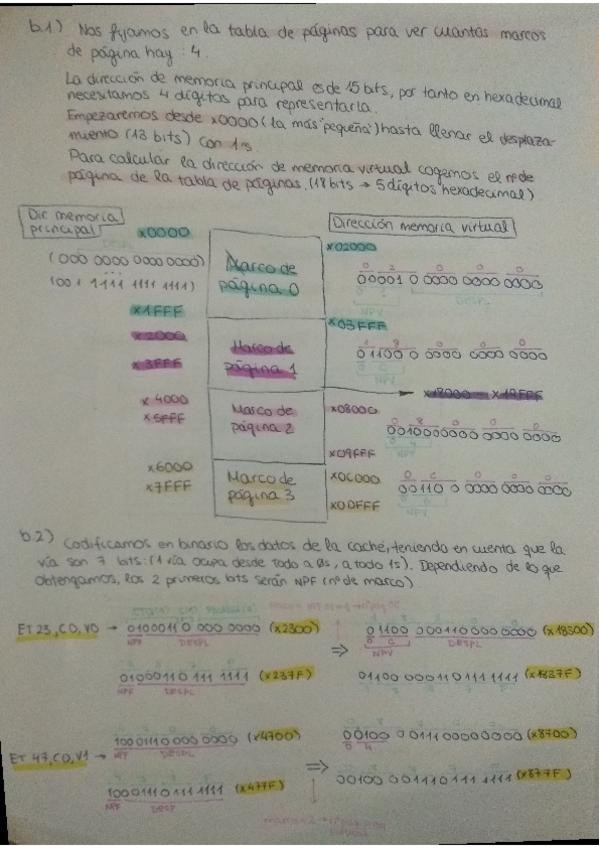 b.1) Nos fijamos en la tabla de páginas para ver cuantos marcos
de página hay: 4.
La dirección de memoria principal es de 15 bits, por tanto en hexadecimal
necesitamos 4 dígitos para representarla.
Empezaremos desde x0000 (la más "pequeña") hasta llenar el desplaza-
miento (13 bits) con 1s
Para calcular la dirección de memoria virtual cogemos el nº de
página de la tabla de páginas. (18 bits → 5 dígitos hexadecimal)
Dir memoria
principal
Dirección memoria virtual
x0000
x02000
(000 0000 0000 0000)
Marco de
página 0
0 2 0 0 0
00001 0 0000 0000 0000
NPV DESPL
(001 1111 1111 1111)
x1FFF
x03FFF
x2000
x3FFF
Marco de
página 1
1 8 0 0 0
01100 0 0000 0000 0000
0 C
NPV
x18000 - x19FFF
x4000
x5FFF
Marco de
página 2
x08000
x09FFF
0 8 0 0 0
0010000000 0000 0000
0 4
x6000
x7FFF
Marco de
página 3
x0C000
x0DFFF
0 C 0 0 0
00110 0 0000 0000 0000
0 6
b.2) Codificamos en binario los datos de la caché, teniendo en cuenta que la
vía son 7 bits: (1 vía ocupa desde todo a 0s, a todo 1s). Dependiendo de lo que
obtengamos, los 2 primeros bits serán NPF (nº de marco)
ET 23, C0, V0 → 0100011 0 000 0000 (x2300) ⇒ 01100 000110000 0000 (x18300)
NPF DESPL
0 C
NPV DESPL
01000110 111 1111 (x237F)
01100 0001101111111 (x1837F)
NPF DESPL
ET 47, C0, V1 → 1000 1110 000 0000 (x4700) ⇒ 00100 0 0111 00000000 (x8700)
NPF DESPL
0 4
1000 1110 111 1111 (x477F)
00100 001110111 1111 (x877F)
NPF DESP